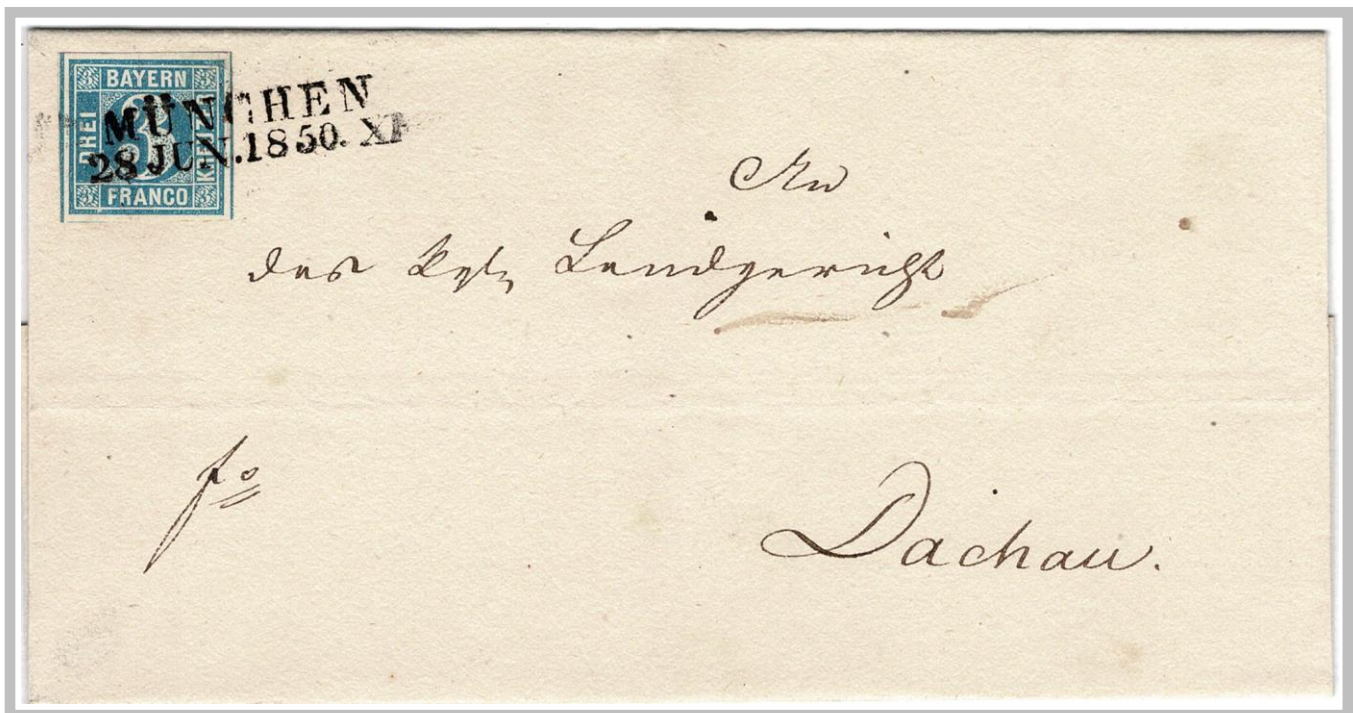 BAYERN
DREI
KREUZER
FRANCO
3
MÜNCHEN
28 JUN. 1850. XI
An
das Kgl. Landgericht
fo
Dachau.